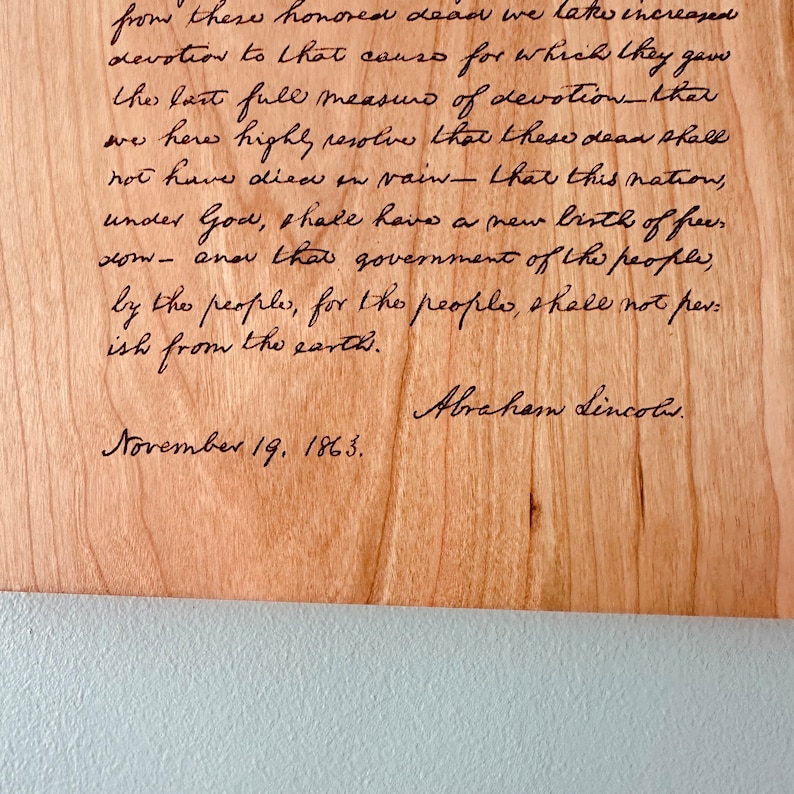 from these honored dead we take increased
devotion to that cause for which they gave
the last full measure of devotion—that
we here highly resolve that these dead shall
not have died in vain— that this nation,
under God, shall have a new birth of free=
dom— and that government of the people,
by the people, for the people, shall not per=
ish from the earth.
Abraham Lincoln.
November 19. 1863.